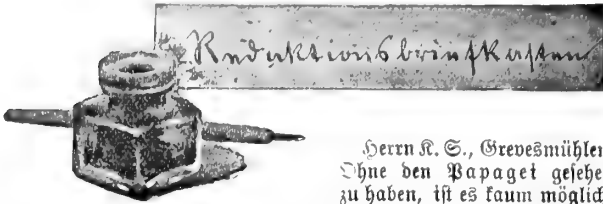 Redaktionsbriefkasten
Herrn K. S., Grevesmühlen
Ohne den Papagei gesehe
zu haben, ist es kaum möglich